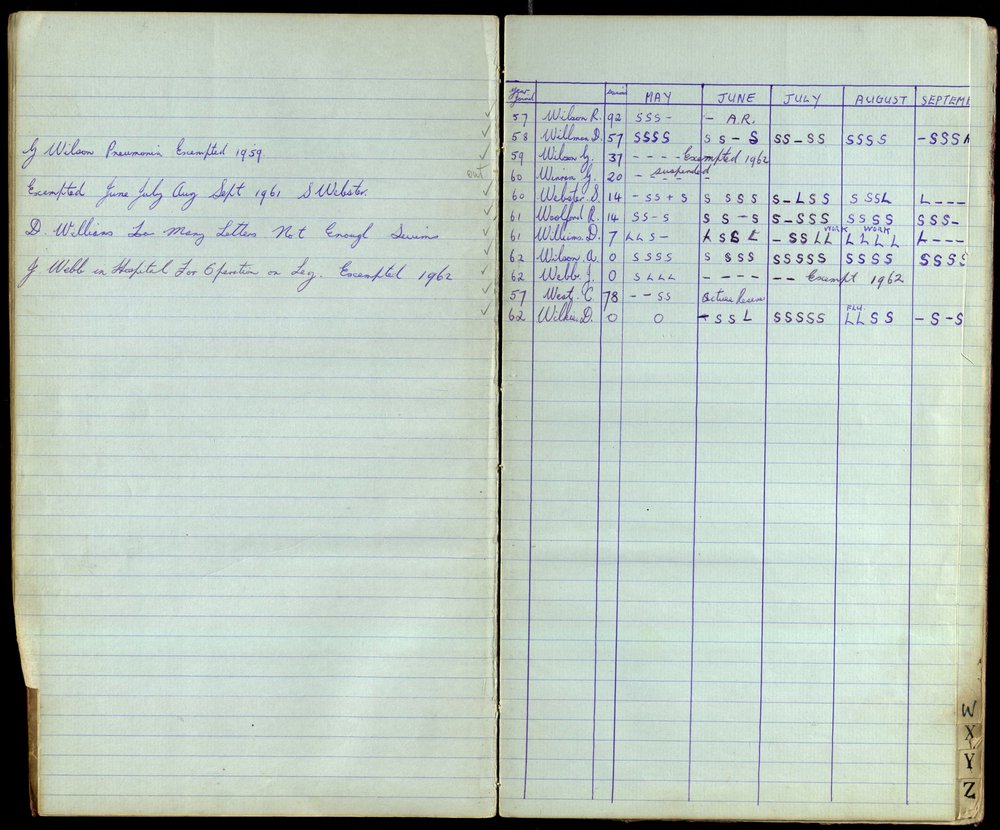 G Wilson Pneumonia Exempted 1959
Exempted June July Aug Sept 1961 S Webster.
D. Williams Too Many Letters Not Enough Swims
J Webb in Hospital For Operation on Leg. Exempted 1962
out
Year Joined MAY JUNE JULY AUGUST SEPTEME
57 Wilson R. 92 SSS- - A.R.
58 Willman D. 57 SSSS SS-S SS-SS SSSS -SSSA
59 Wilson G. 37 ---- Exempted 1962
60 G. 20 - suspended -
60 Webster S. 14 -SS+S SSSS S-LSS SSSL L---
61 Woolford R. 14 SS-S SS-S S-SSS SSSS SSS-
WORK WORK
61 Williams. D. 7 LLS- LSSL -SSLL LLLL L---
62 Wilson A. 0 SSSS SSSS SSSSS SSSS SSSS
62 Webb J. 0 SLLL ---- -- Exempt 1962
57 West. C 78 --SS Active Reserve
FLU.
62 Wilkie. D. 0 0 -SSL SSSSS LLSS -S-S
W
X
Y
Z